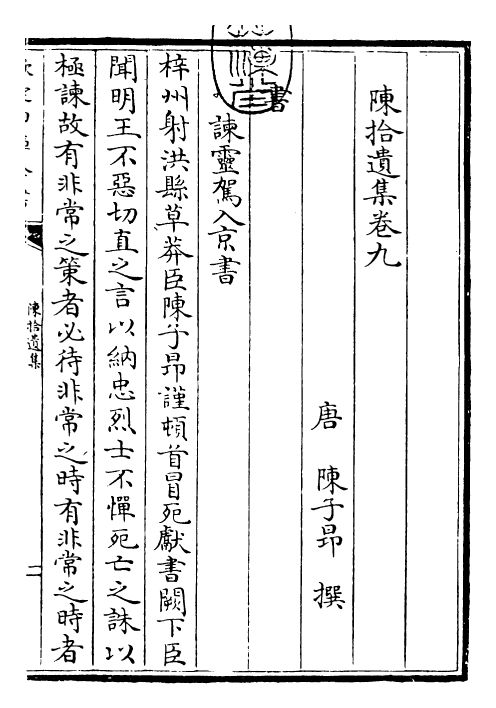 陳拾遺集卷九
唐 陳子昂 撰
書
諫靈駕入京書
梓州射洪縣草莽臣陳子昂謹頓首冒死獻書闕下臣
聞明王不惡切直之言以納忠烈士不憚死亡之誅以
極諫故有非常之策者必待非常之時有非常之時者
陳拾遺集